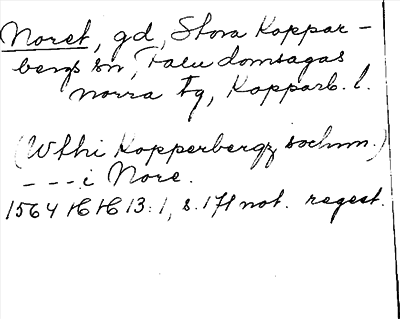 Noret, gd, Stora Koppar-
bergs sn, Falu domsagas
norra tg, Kopparb. l.
(Wthi Kopperbergz sochnn.)
---i Nore.
1564 HH 13:1, s. 171 not. regest.